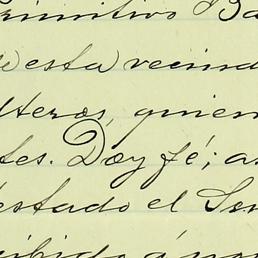 Primitivo Ba
esta vecind
lteros, quien
tes. Doy fé; a
estado el Señ